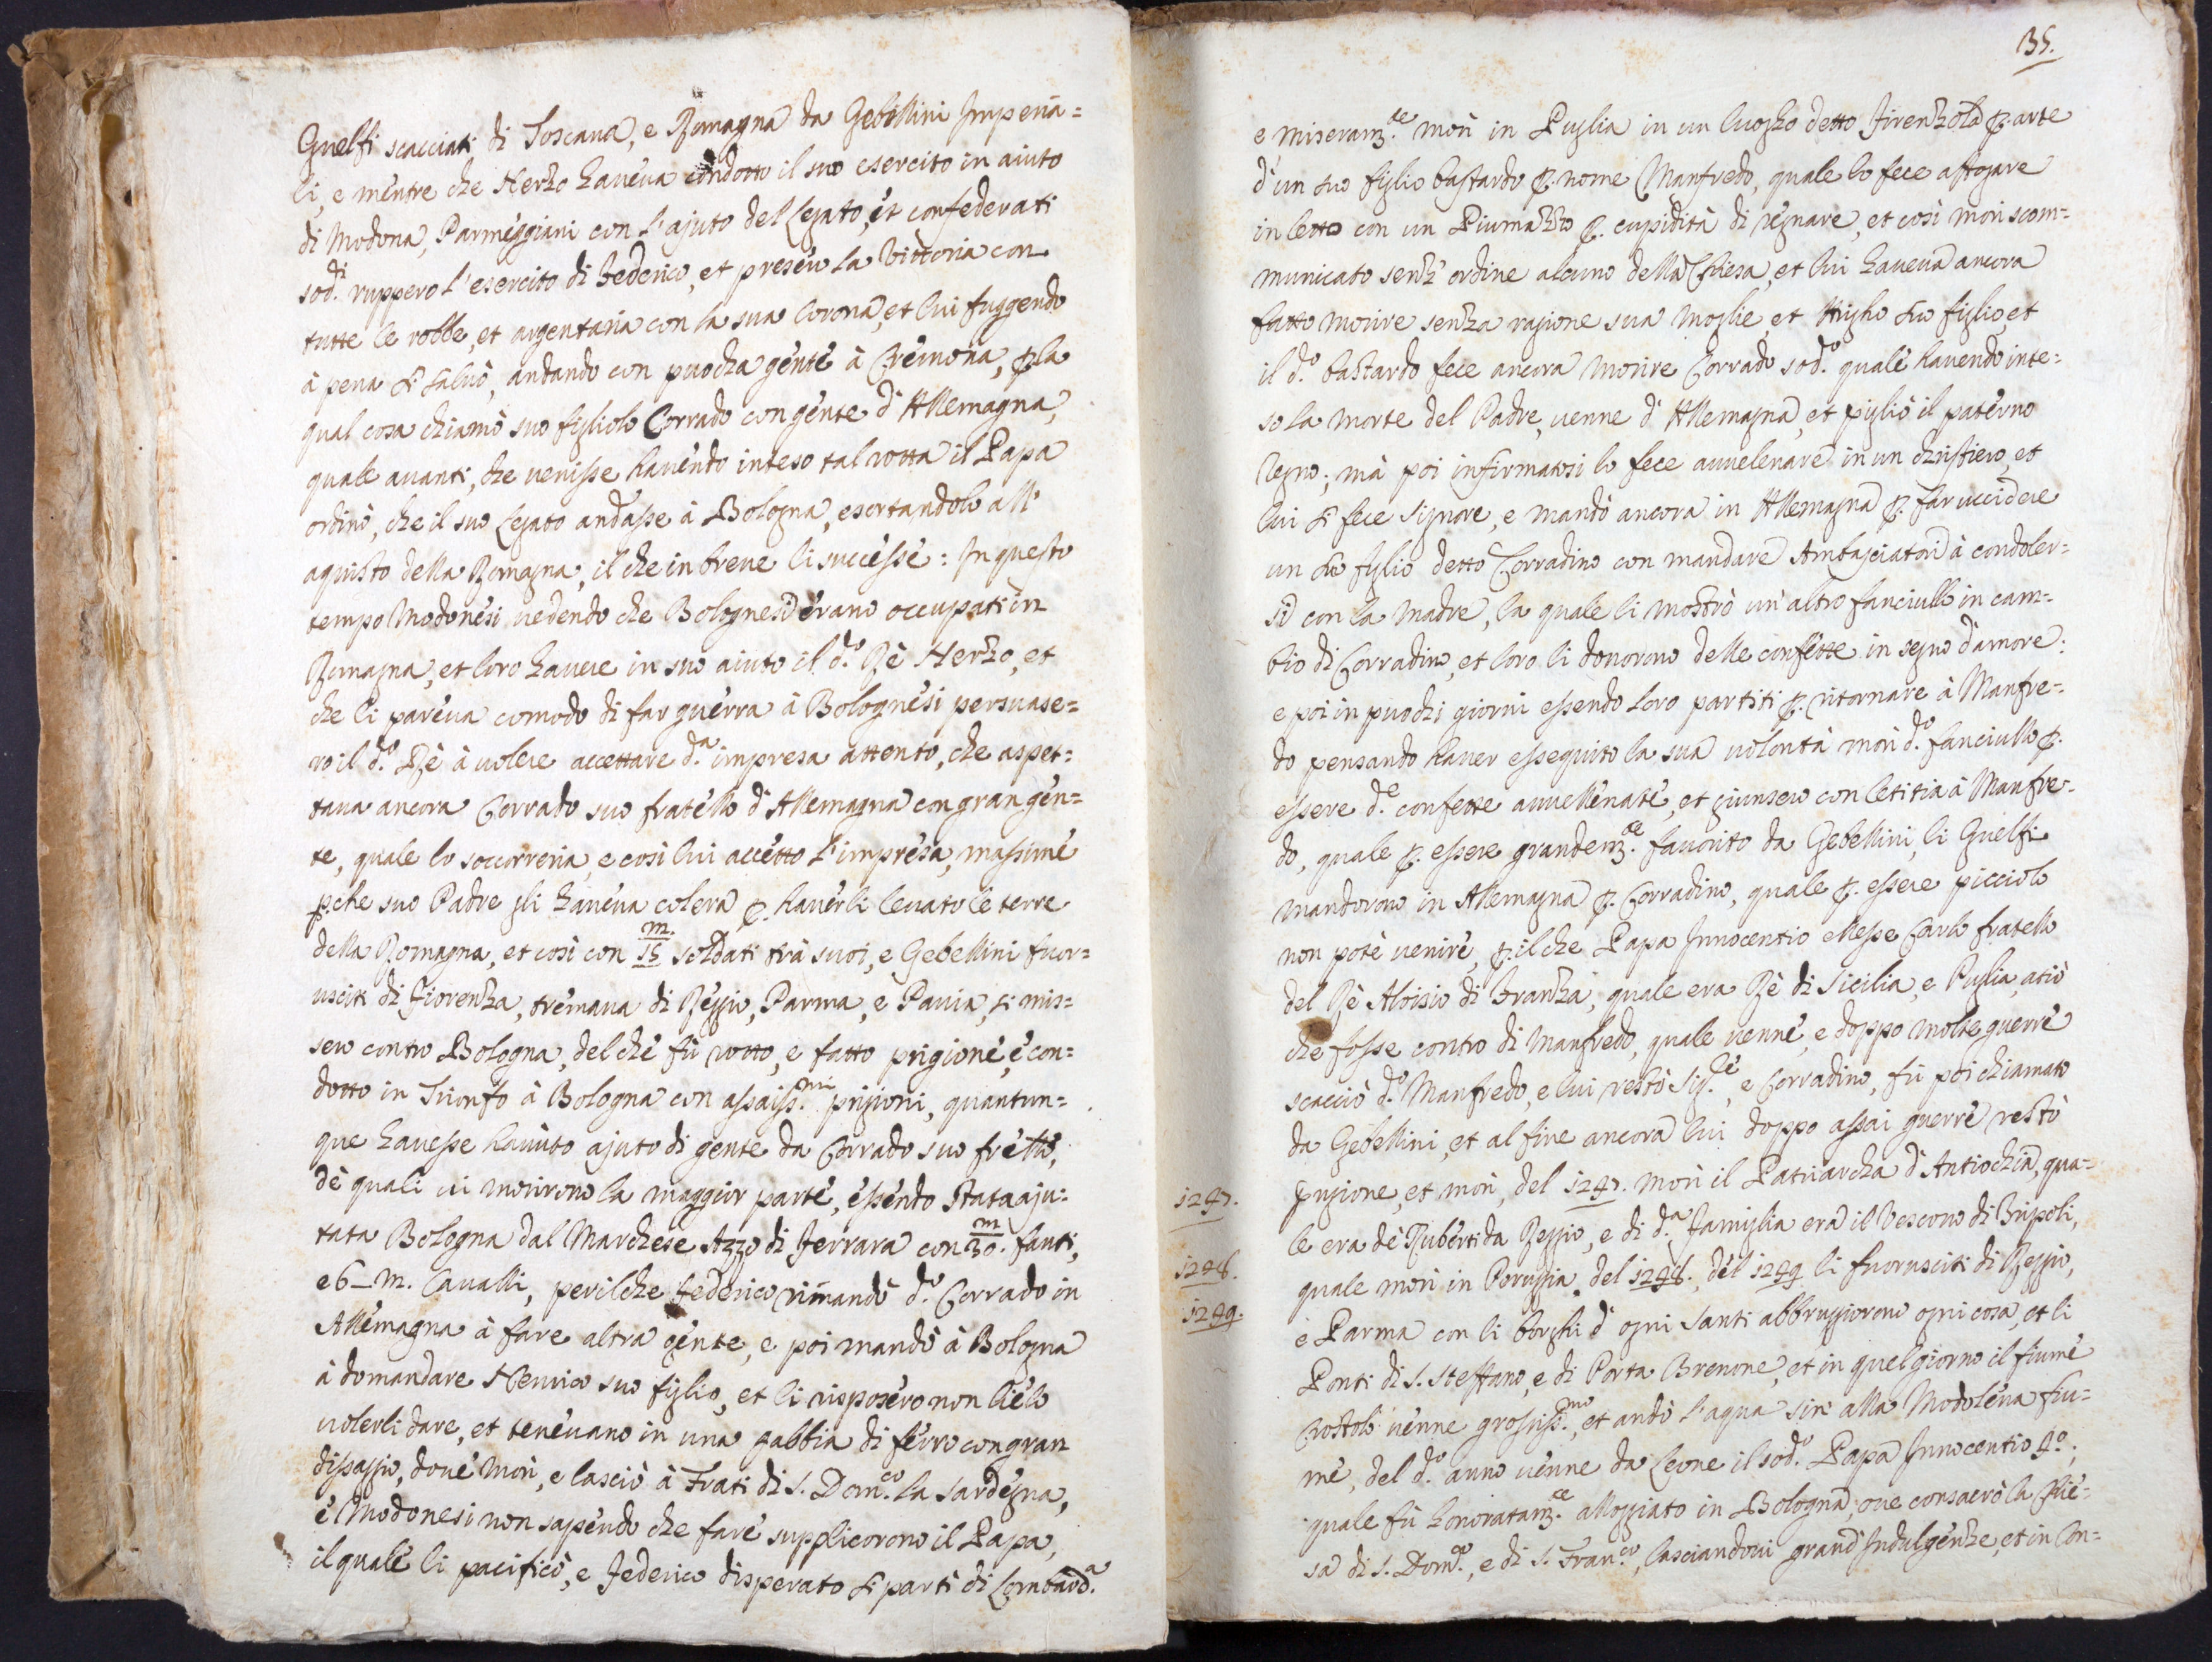 Guelfi scacciati di Toscana, e Romagna da Gebellini Imperia=
li, e mentre che Herzo haueua condotto il suo esercito in aiuto
di Modona, Parmeggiani con l'ajuto del Legato, et confederati
sod.ti ruppero l'esercito di Federico, et presero la Vittoria con
tutte le robbe, et argentaria con la sua Corona, et lui fuggendo
à pena si saluò, andando con puocha gente à Cremona, p. la
qual cosa chiamò suo figliolo Corrado con gente d'Allemagna,
quale auanti, che venisse hauendo inteso tal rotta il Papa
ordinò, che il suo Legato andasse à Bologna, esortandolo all'
aquisto della Romagna, il che in breue li successe: In questo
tempo Modonesi uedendo che Bolognesi erano occupati in
Romagna, et loro hauere in suo aiuto il d.o Rè Herzo, et
che li pareua comodo di far guerra à Bolognesi persuase=
ro il d.o Rè à uolere accettare d.a impresa attento, che aspet=
taua ancora Corrado suo fratello d'Allemagna con gran gen=
te, quale lo soccorreria, e così lui accettò l'impresa, massime
p.che suo Padre gli haueua colera p. hauerli leuato le terre
della Romagna, et così con 15 m. soldati trà suoi, e Gebellini fuor=
usciti di Fiorenza, tremaua di Reggio, Parma, e Pauia, si mis=
sero contro Bologna, del che fù rotto, e fatto prigione, e con=
dotto in Trionfo à Bologna con assaiss.mi prigioni, quantun=
que hauesse hauuto ajuto di gente da Corrado suo frello,
dè quali ui morirono la maggior parte, essendo stata aju=
tata Bologna dal Marchese Azzo di Ferrara con 30 m. fanti,
e 6_m. Caualli, perilche Federico rimandò d.o Corrado in
Allemagna à fare altra gente, e poi mandò à Bologna
à domandare Henrico suo figlio, et li risposero non lielo
uolerli dare, et teneuano in una gabbia di ferro con gran
dissaggio, doue morì, e lasciò à Frati di S. Dom.co la Sardegna,
e Modonesi non sapendo che fare supplicorono il Papa,
il quale li pacificò, e Federico disperato si partì di Lombard.a
35.
e miseram.te morì in Puglia in un luogho detto Firenzola p. arte
d'un suo figlio bastardo p. nome Manfredo, quale lo fece affogare
in letto con un Piumazzo p. cupidità di regnare, et così morì scom=
municato senz'ordine alcuno della Chiesa, et lui haueua ancora
fatto morire senza ragione sua Moglie et Arigho suo figlio, et
il d.o bastardo fece ancora morire Corrado sod.o quale hauendo inte=
so la morte del Padre, uenne d'Allemagna, et pigliò il paterno
Regno; mà poi infirmatosi lo fece auuelenare in un christiero, et
lui si fece Signore, e mandò ancora in Allemagna p. far uccidere
un suo figlio detto Corradino con mandare Ambasciatori à condoler=
si con la Madre, la quale li mostrò un'altro fanciullo in cam=
bio di Corradino, et loro li donorono delle confette in segno d'amore:
e poi in puochi giorni essendo loro partiti p. ritornare à Manfre=
do pensando hauer essequito la sua uolontà morì d.o fanciullo p.
essere d.e confette auuellenate, et giunsero con letitia à Manfre=
do, quale p. essere grandem.te fauorito da Gebellini, li Guelfi
mandorono in Allemagna p. Corradino, quale p. essere picciolo
non potè uenire, p. il che Papa Innocentio ellesse Carlo fratello
del Rè Aloisio di Franza, quale era Rè di Sicilia, e Puglia, atiò
che fosse contro di Manfredo, quale uenne, e doppo molte guerre
scacciò d.o Manfredo, e lui restò Sig.re, e Corradino, fù poi chiamato
da Gebellini, et al fine ancora lui doppo assai guerre restò
1247. prigione, et morì, del 1247. morì il Patriarcha d'Antiochia, qua=
le era dè Ruberti da Reggio, e di d.a Famiglia era il Vescouo di Tripoli,
1248. quale morì in Peruggia del 1248., del 1249 li fuorusciti di Reggio,
1249. e Parma con li borghi d'ogni Santi abbruggiorono ogni cosa, et li
Ponti di S. Steffano, e di Porta Brenone, et in quel giorno il fiume
Crostolo uenne grossiss.mo, et andò l'aqua sin' alla Modolena fiu=
me, del d.o anno uenne da Leone il sod.o Papa Innocentio 4.o,
quale fù honoratam.te alloggiato in Bologna, oue consacrò la Chie=
sa di S. Dom.co, e di S. Fran.co, lasciandoui grand'Indulgenze, et in Con=